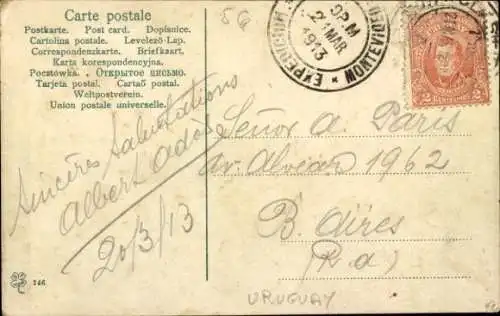 Carte postale
Postkarte. Post card. Dopisnice.
Cartolina postale. Levelező-Lap.
Correspondenzkarte. Briefkaart.
Karta korespondencyjna.
Pocztówka. Открытое письмо.
Tarjeta postal. Cartaŏ postal.
Weltpostverein.
Union postale universelle.
sincères salutations
Albert
20/3/13
56
EXPEDICION
9PM
21 MAR
1913
MONTEVIDEO
2
Señor A. Paris
Av. Alvear 1962
B. Aires
(R a)
URUGUAY
146